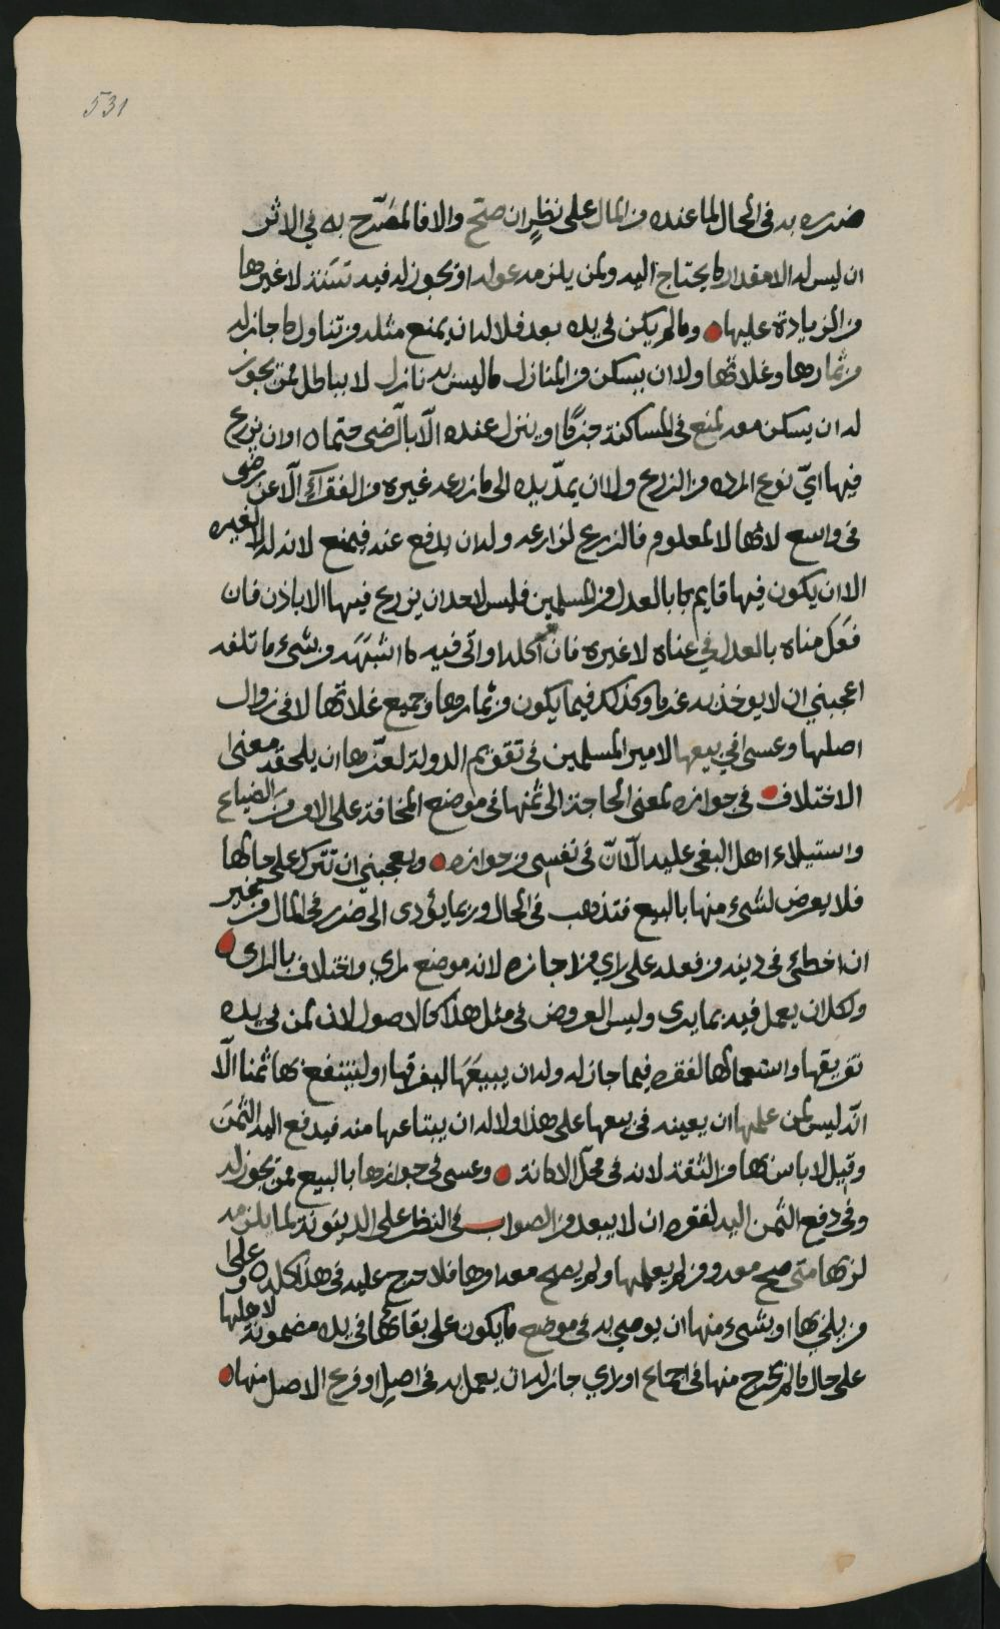 531
ضرره به في الحال لما عنده من المال على نظر ان صح والا فالمصرح به في الاثر
ان ليس له الا مقدار ما يحتاج اليه ولمن يلزمه عوله او يجوز له فيه لا غيرها
من الزيادة عليها وما لم يكن في يده بعد فلا له ان يمنع مثله من تناول ما جاز له
من ثمارها وغلاتها ولا ان يسكن من المنازل ما ليس به نازل لا بباطل ممن يجوز
له ان يسكن معه لمنع في المساكنة او ينزل عنده الّا بالرّضى حتما او ان يزرع
فيها ايّ نوع اراده من الزرع ولا ان يمدّ يده الى ما زرعه غيره من الفقراء الّا عن رضى
في واسع لانها لا لمعلوم فالزرع لزارعه وله ان يدفع عنه فيمنع لانه له لا لغيره
الا ان يكون فيها قايم بالعدل من المسلمين فليس لاحد ان يزرع فيها الا باذن فان
فعل عناه بالعدل في عناه لا غيره فان اكله او اتى فيه ما اشبهه من شيء ما تلفه
اعجبني ان لا يوخذ به غرما وكذلك فيما يكون من ثمارها وجميع غلاتها لا في زوال
اصلها وعسى في بيعها لامير المسلمين في تقويم الدولة لعزّها ان يلحقه معنى
الاختلاف في جوازه لمعنى الحاجة الى ثمنها في موضع المخافة على الامر من الضياع
واستيلاء اهل البغي عليه الّا انّ في نفسي من جوازه ويعجبني ان تترك على حالها
فلا يعرض لشيء منها بالبيع فتذهب في الحال وربما يؤدي الى ضرر في المال من غير
ان اخطئ في دينه من فعله على راي من اجازه لانه موضع راي واختلاف بالراي
ولكل ان يعمل فيه بما يرى وليس العروض في مثل هذا كالاصول لان لمن في يده
تفريقها واستعمالها لفقره فيما جاز له وله ان يبيعها ليفرقها او لينتفع بها ثمنا الّا
انّه ليس لمن علمها ان يعينه في بيعها على هذا ولا له ان يبتاعها منه فيدفع اليه الثمن
وقيل لا باس بها من الثقة لانه في محلّ الامانة وعسى في جوازها بالبيع ممن يجوز له
وفي دفع الثمن اليه لفقره ان لا يبعد من الصواب في النظر على الدينونة لما يلزمه
لربها متى صح معه ومن لم يعلمها ولم يصح معه امرها فلا حرج عليه في هذا كله وعلى
من بلي بها او بشيء منها ان يوصي به في موضع ما يكون على بقائها في يده مضمونة لاهلها
على حال ما لم يخرج منها في اجماع او راي جاز له ان يعمل به في اصل او فرع الاصل منها